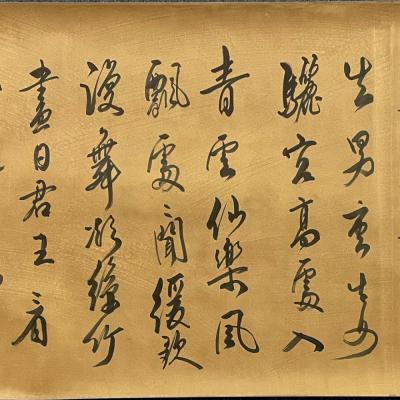 生男重生女
驪宮高處入
青雲仙樂風
飄處〻聞緩歌
謾舞凝絲竹
盡日君王看